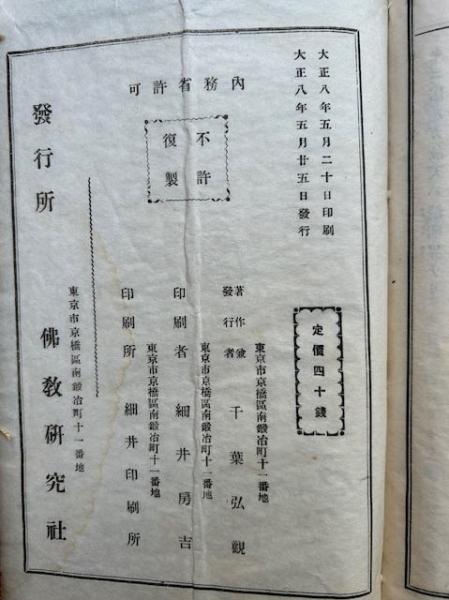 大正八年五月二十日印刷
大正八年五月廿五日發行
定價四十錢
內務省許可
不許
復製
東京市京橋區南鍛冶町十一番地
著作兼
發行者
千葉弘觀
東京市京橋區南鍛冶町十一番地
印刷者 細井房吉
東京市京橋區南鍛冶町十一番地
印刷所 細井印刷所
發行所
東京市京橋區南鍛冶町十一番地
佛敎硏究社